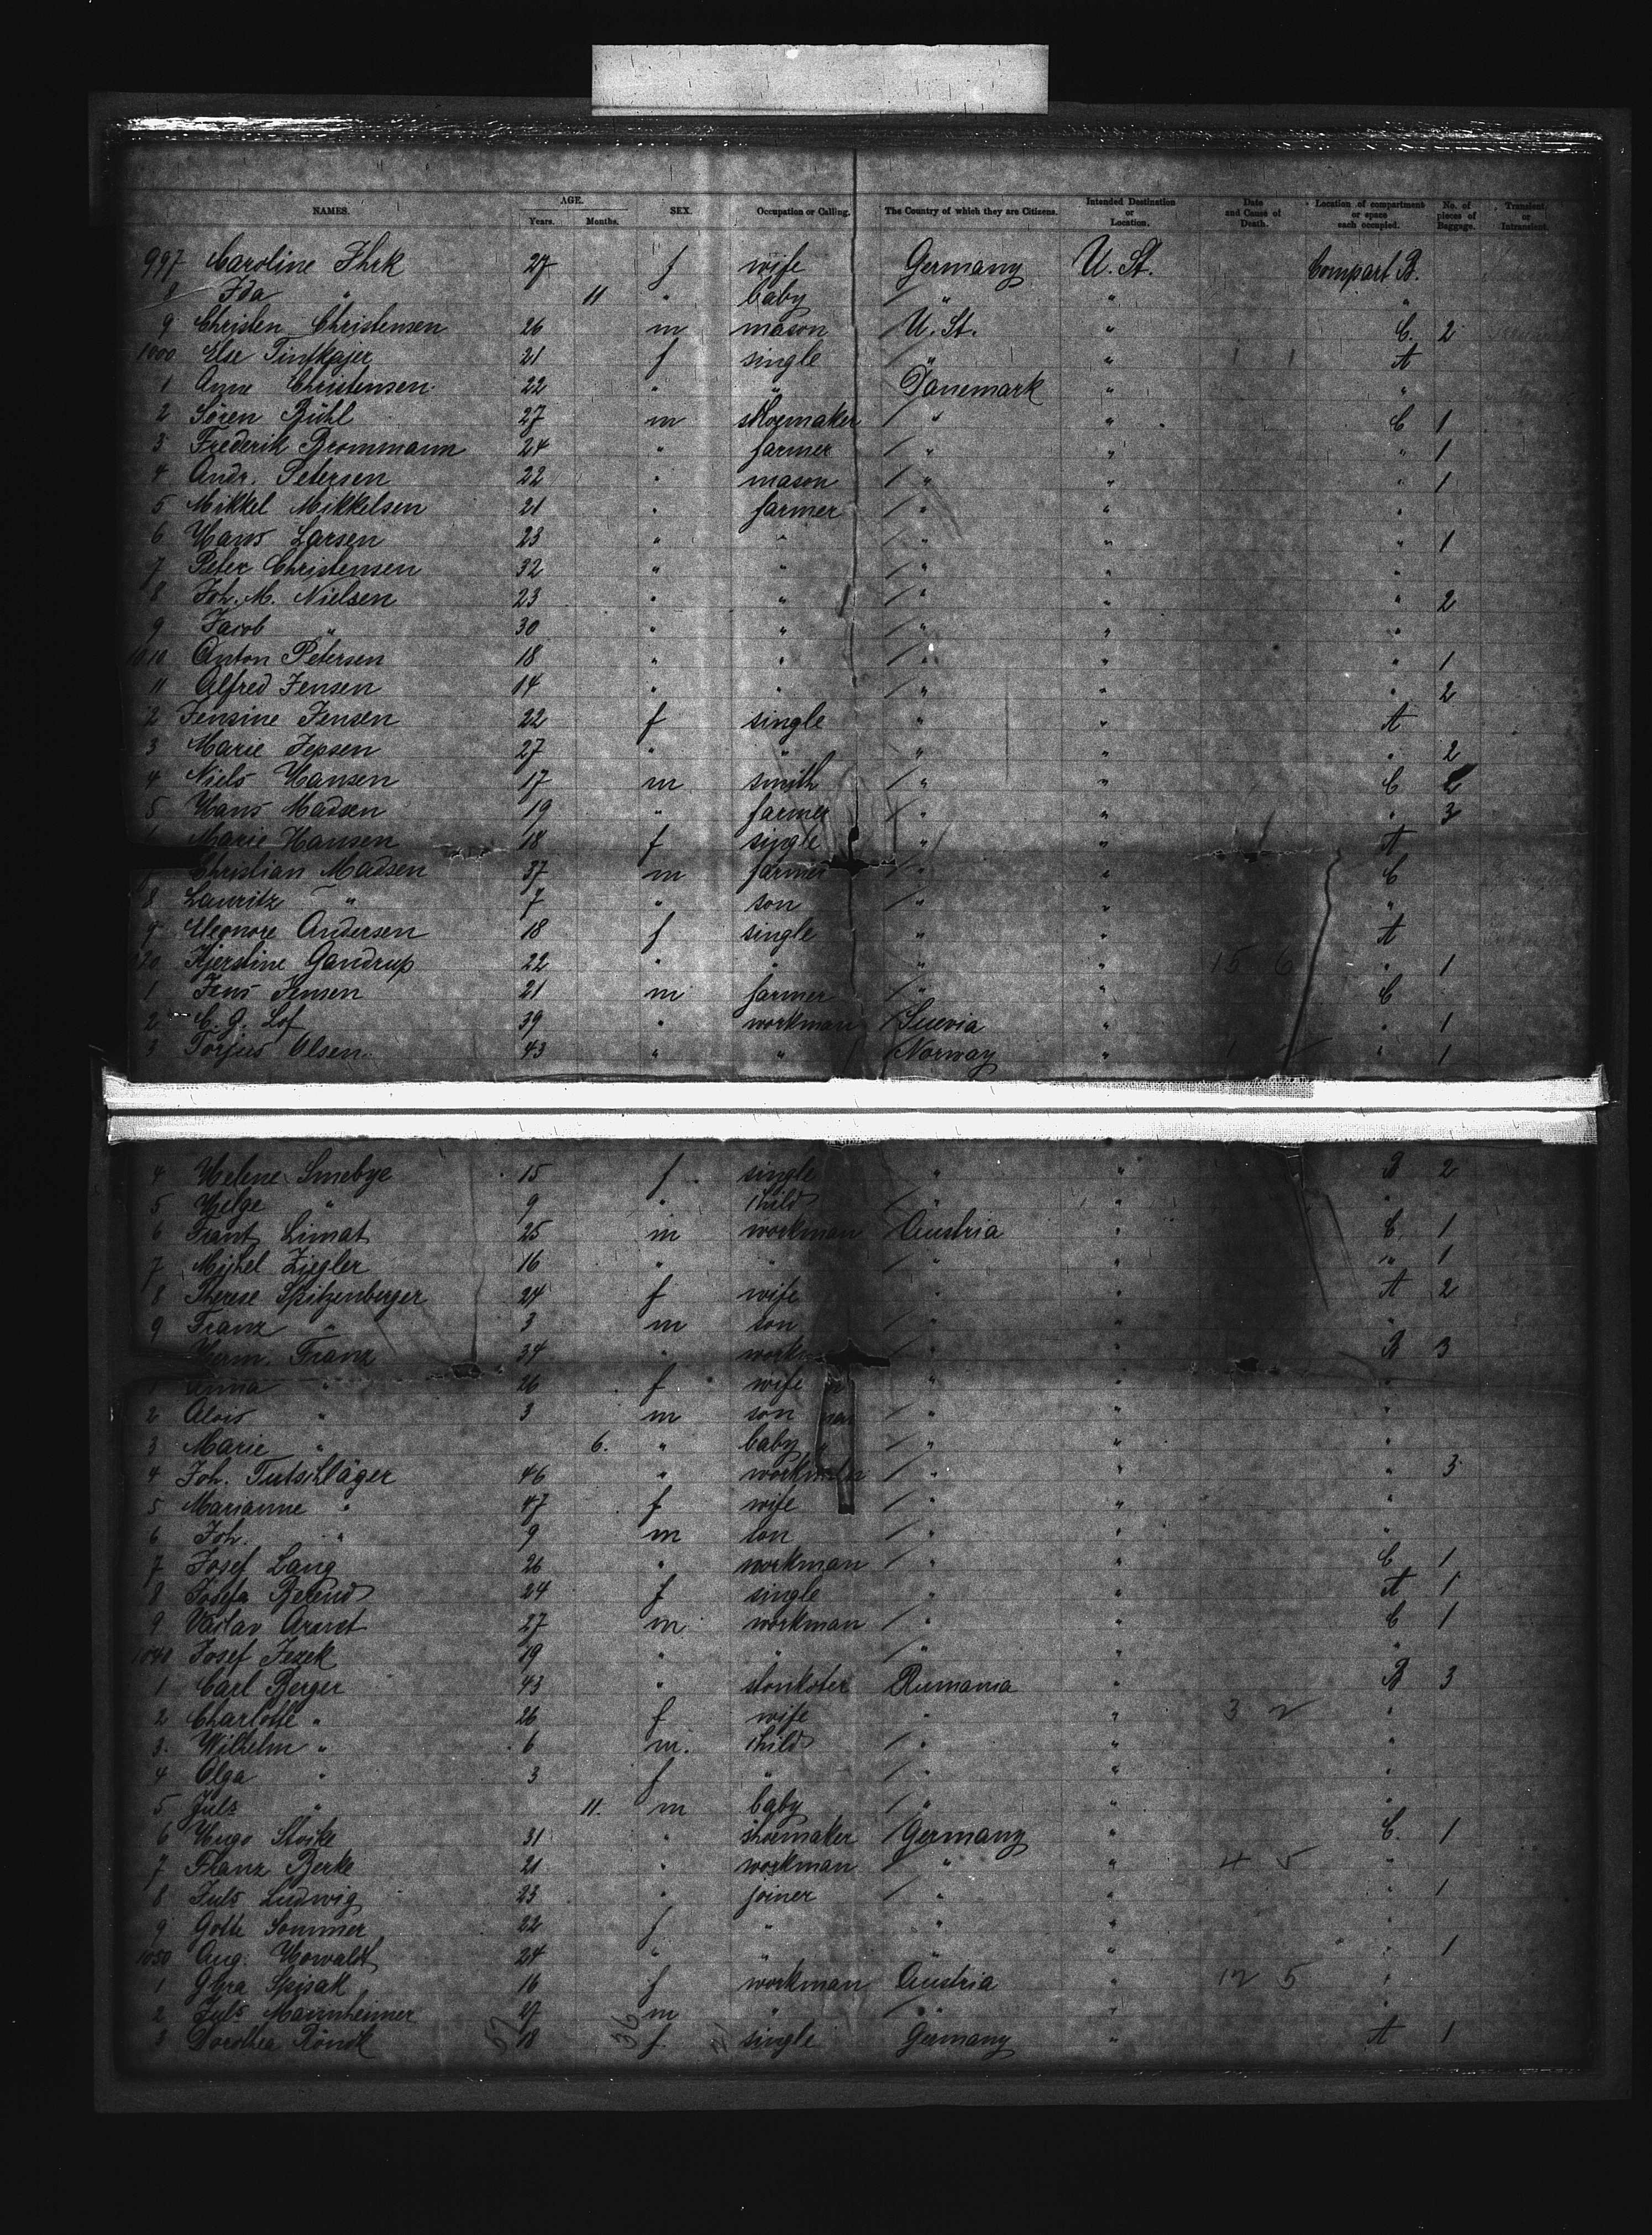 NAMES. AGE. Years. Months. SEX. Occupation or Calling. The Country of which they are Citizens. Intended Destination or Location. Date and Cause of Death. Location of compartment or space each occupied. No. of pieces of Baggage. Transient or Intransient.
997 Caroline Ihrk 27 f wife Germany U. St. Compart B.
8 Ida " 11 " baby / " " "
9 Christen Christensen 26 m mason / U. St. " C. 2
1000 Else 21 f single / " " A
1 Anne Christensen 22 " " Danemark " "
2 Sören Bühl 27 m shoemaker / " " C 1
3 Frederik Brommann 24 " farmer / " " " 1
4 Andr. Petersen 22 " mason / " " " 1
5 Mikkel Mikkelsen 21 " farmer / " " "
6 Hans Larsen 23 " " / " " " 1
7 Peter Christensen 32 " " / " " "
8 Joh. M. Nielsen 23 " " / " " " 2
9 Jacob " 30 " " / " " "
1010 Anton Petersen 18 " " / " " " 1
11 Alfred Jensen 14 " " / " " " 2
2 Jensine Jensen 22 f single " " A
3 Marie Jepsen 27 " " " " " 2
4 Niels Hansen 17 m smith / " " C
5 Hans Madsen 19 " farmer / " " " 3
Marie Hansen 18 f single " " A
Christian Madsen 37 m farmer / " " C
8 Lauritz " 7 " son / " " "
9 Eleonore Andersen 18 f single " " A
20 Kjerstine Gandrup 22 " " " " 15 6 " 1
1 Jens Jensen 21 m farmer / " " C
2 C. G. Lof 39 " workman / Suevia " " 1
3 Torjus Olsen 43 " " / Norway " " 1
4 Helene Smebye 15 f single " " B 2
5 Helge " 9 " child / " " "
6 Limat 25 m workman / Austria " C. 1
7 Michel Ziegler 16 " " / " " " 1
8 Therese Spitzenberger 24 f wife " " A 2
9 Franz " 3 m son / " " "
Herm. Franz 34 " / " " B 3
1 Anna " 26 f wife " " "
2 Alois " 3 m son / " " "
3 Marie " 6. " baby / " " "
4 Joh. Tutschläger 46 " / " " " 3
5 Marianne " 47 f wife / " " "
6 Joh. " 9 m son / " " "
7 Josef Lang 26 " workman / " " C 1
8 Josefa Berend 24 f single " " A 1
9 Vaclav 27 m workman / " " C 1
1040 Josef Jezek 19 " " / " " "
1 Carl Berger 43 " Rumania " B 3
2 Charlotte " 26 f wife " " 3 2 "
3. Wilhelm " 6 m. child / " " "
4 Olga " 3 f " / " " "
5 Juls " 11. m baby / " " "
6 Hugo Stoike 31 " shoemaker / Germany " C. 1
7 Franz Berke 21 " workman / " " 4 5 "
8 Juls Ludwig 23 " joiner / " " " 1
9 Sommer 22 f " " " "
1050 Aug. Howaldt 24 " " " " " 1
1 Spisak 16 f workman Austria " 12 5 "
2 Juls Mannheimer 27 m " / " " "
3 Dorothea Röndk 18 f. single Germany " A 1
57 36 21